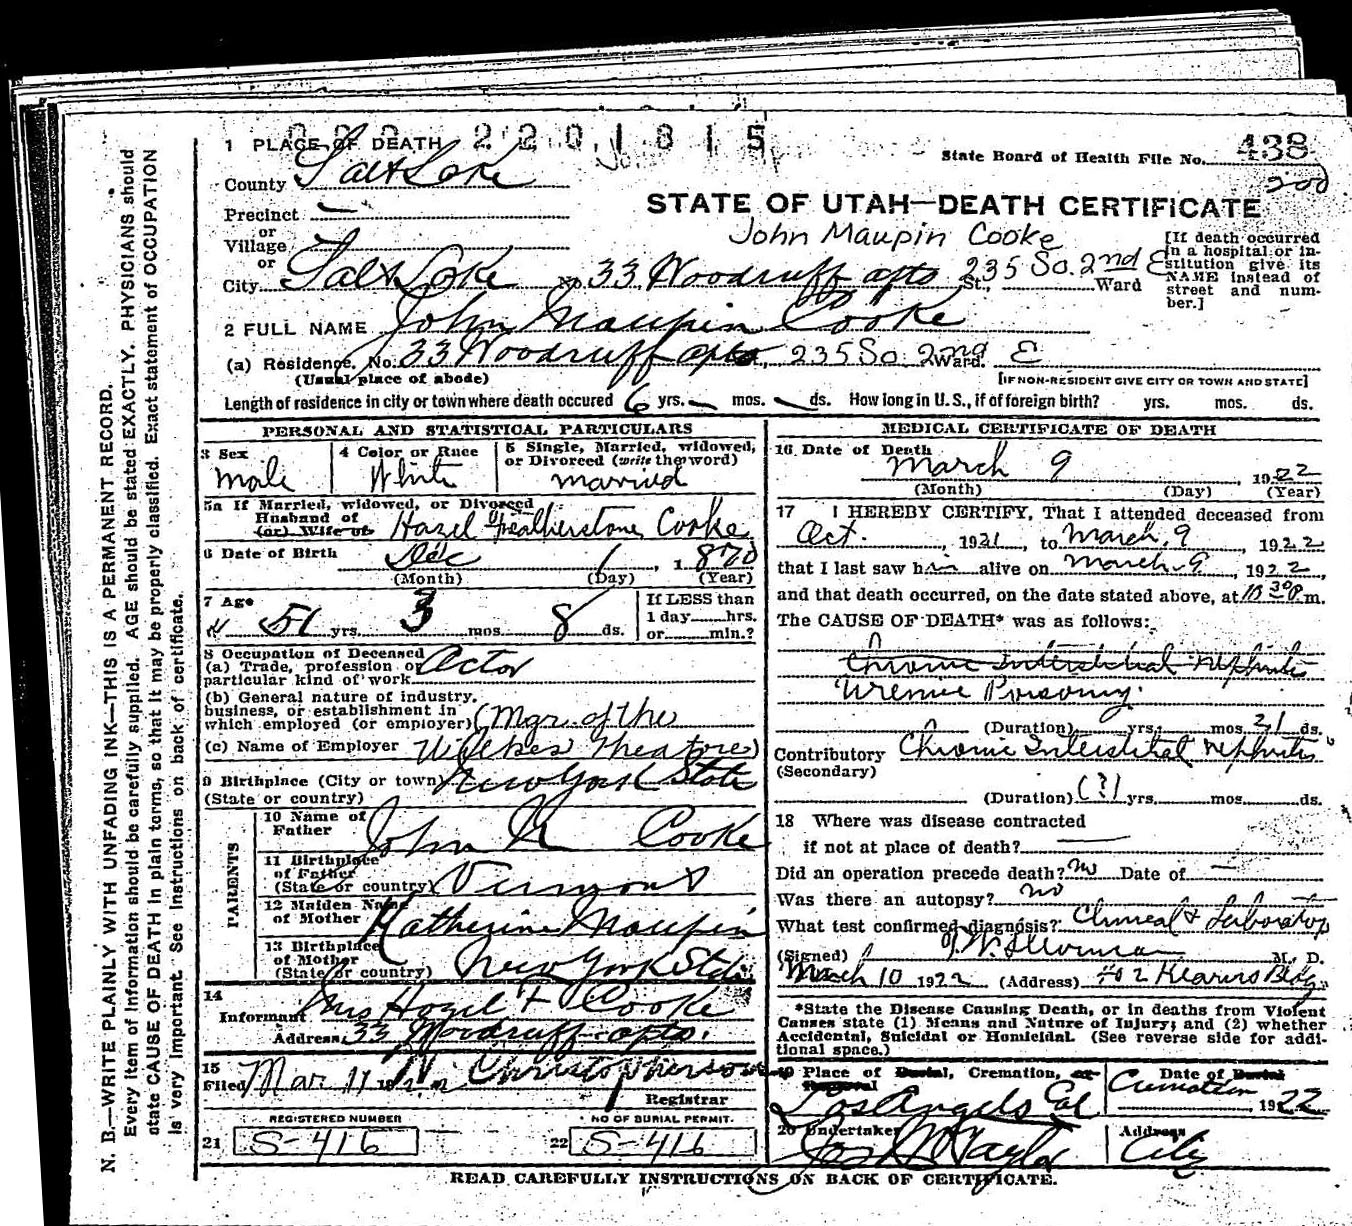 1 PLACE OF DEATH 2201815
State Board of Health File No. 438
County Salt Lake
200
Precinct —
or
Village
or
City Salt Lake No. 33 Woodruff apts 235 So. 2nd E St., Ward
STATE OF UTAH—DEATH CERTIFICATE
John Maupin Cooke
[If death occurred
in a hospital or in-
stitution give its
NAME instead of
street and num-
ber.]
2 FULL NAME John Maupin Cooke
(a) Residence. No. 33 Woodruff apts, 235 So 2nd Ward. E
(Usual place of abode)
[IF NON-RESIDENT GIVE CITY OR TOWN AND STATE]
Length of residence in city or town where death occured 6 yrs. — mos. — ds. How long in U. S., if of foreign birth? yrs. mos. ds.
PERSONAL AND STATISTICAL PARTICULARS
3 Sex
male
4 Color or Race
White
5 Single, Married, widowed,
or Divorced (write the word)
married
5a If Married, widowed, or Divorced
Husband of
(or) Wife of
Hazel Featherstone Cooke
6 Date of Birth Dec 1, 1870
(Month) (Day) (Year)
7 Age
51 yrs. 3 mos. 8 ds.
If LESS than
1 day hrs.
or min.?
8 Occupation of Deceased
(a) Trade, profession or
particular kind of work Actor
(b) General nature of industry,
business, or establishment in
which employed (or employer) (Mgr. of the
(c) Name of Employer Wilkes Theatre)
9 Birthplace (City or town) New York State
(State or country)
PARENTS
10 Name of
Father John Cooke
11 Birthplace
of Father
(State or country) Vermont
12 Maiden Name
of Mother Katherine Maupin
13 Birthplace
of Mother
(State or country) New York State
14
Informant Mrs Hazel F Cooke
Address 33 Woodruff apts.
15
Filed Mar 11 Christopherson
Registrar
REGISTERED NUMBER
21 S-416
NO OF BURIAL PERMIT.
22 S-416
MEDICAL CERTIFICATE OF DEATH
16 Date of Death
March 9, 1922
(Month) (Day) (Year)
17 I HEREBY CERTIFY, That I attended deceased from
Oct., 1921, to March, 9, 1922
that I last saw him alive on March 9, 1922,
and that death occurred, on the date stated above, at 10 30 p.m.
The CAUSE OF DEATH* was as follows:
Chronic Interstitial nephritis
Uremic Poisoning.
(Duration) yrs. mos. 21 ds.
Contributory Chronic Interstitial Nephritis
(Secondary)
(Duration) (?) yrs. mos. ds.
18 Where was disease contracted
if not at place of death? —
Did an operation precede death? no Date of —
Was there an autopsy? no
What test confirmed diagnosis? Clinical & Laboratory
(Signed) M. D.
March 10 1922 (Address) 402 Kearns Bldg.
*State the Disease Causing Death, or in deaths from Violent
Causes state (1) Means and Nature of Injury; and (2) whether
Accidental, Suicidal or Homicidal. (See reverse side for addi-
tional space.)
19 Place of Burial, Cremation, or
Removal
Los Angels Cal
Date of Burial
Cremation
1922
20 Undertaker
Taylor
Address
City
READ CAREFULLY INSTRUCTIONS ON BACK OF CERTIFICATE.
N. B.—WRITE PLAINLY WITH UNFADING INK—THIS IS A PERMANENT RECORD.
Every item of information should be carefully supplied. AGE should be stated EXACTLY. PHYSICIANS should
state CAUSE OF DEATH in plain terms, so that it may be properly classified. Exact statement of OCCUPATION
is very important. See instructions on back of certificate.